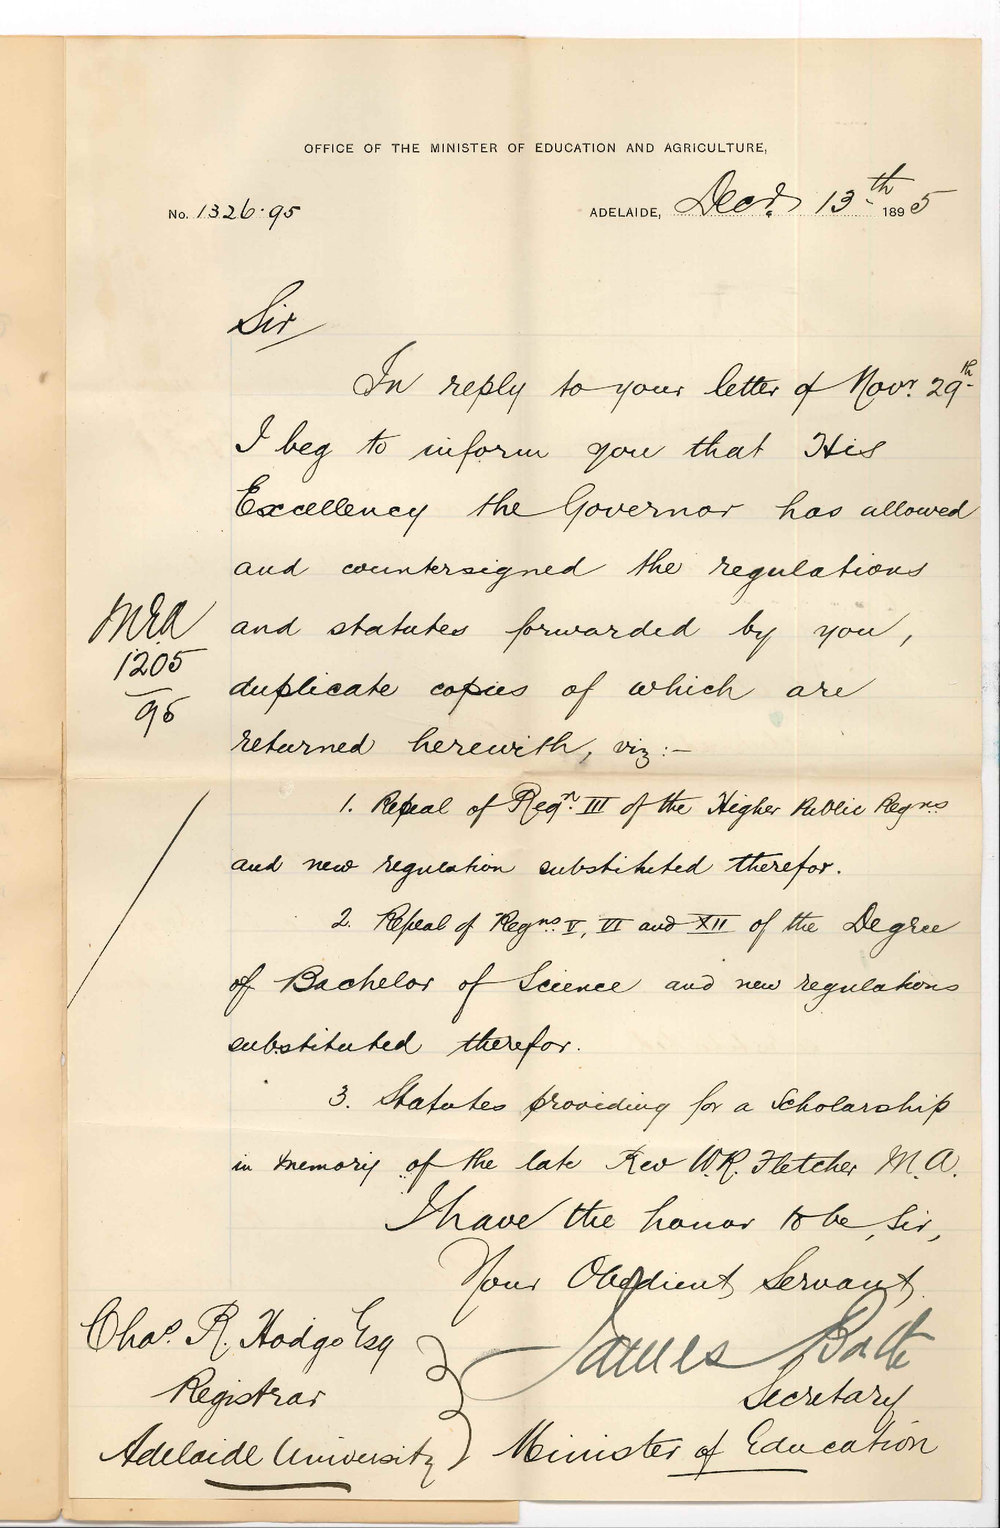 OFFICE OF THE MINISTER OF EDUCATION AND AGRICULTURE,
No. 1326.95
ADELAIDE, Decr. 13th 1895
Sir
In reply to your letter of Novr. 29th
I beg to inform you that His
Excellency the Governor has allowed
and countersigned the regulations
and statutes forwarded by you,
duplicate copies of which are
returned herewith, viz:—
1. Repeal of Regn. III of the Higher Public Regns
and new regulation substituted therefor.
2. Repeal of Regns. V, VI and XII of the Degree
of Bachelor of Science and new regulations
substituted therefor.
3. Statutes providing for a Scholarship
in memory of the late Rev W.R. Fletcher M.A.
I have the honor to be, Sir,
Your Obedient Servant
James Bath
Secretary
Minister of Education
Chas. R. Hodge Esq
Registrar
Adelaide University
1205
95